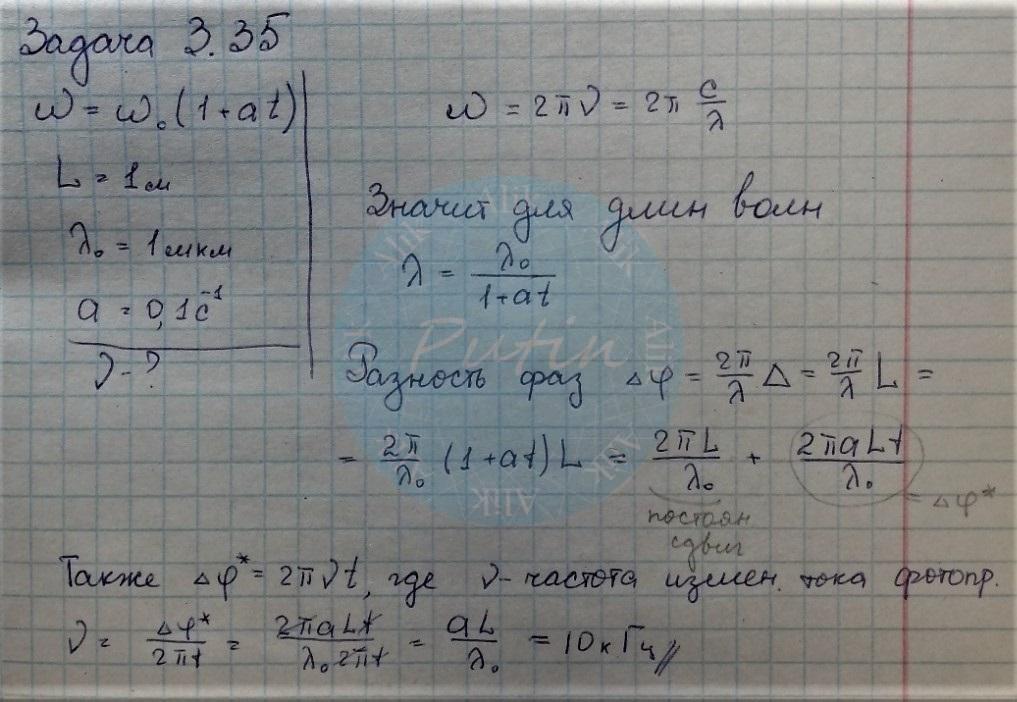 Задача 3.35
ω = ω₀(1+at)
L = 1м
λ₀ = 1мкм
a = 0,1с⁻¹
ν - ?
ω = 2πν = 2π c/λ
Значит для длин волн
λ = λ₀/(1+at)
Разность фаз Δφ = 2π/λ Δ = 2π/λ L =
= 2π/λ₀ (1+at) L = 2πL/λ₀ + 2πaLt/λ₀
постоян
сдвиг
= Δφ*
Также Δφ* = 2πνt, где ν - частота измен. тока фотопр.
ν = Δφ*/2πt = 2πaLt/λ₀2πt = aL/λ₀ = 10кГц //
Putin
Alik
Alik
Alik
Alik
Alik
Alik
Alik
Alik